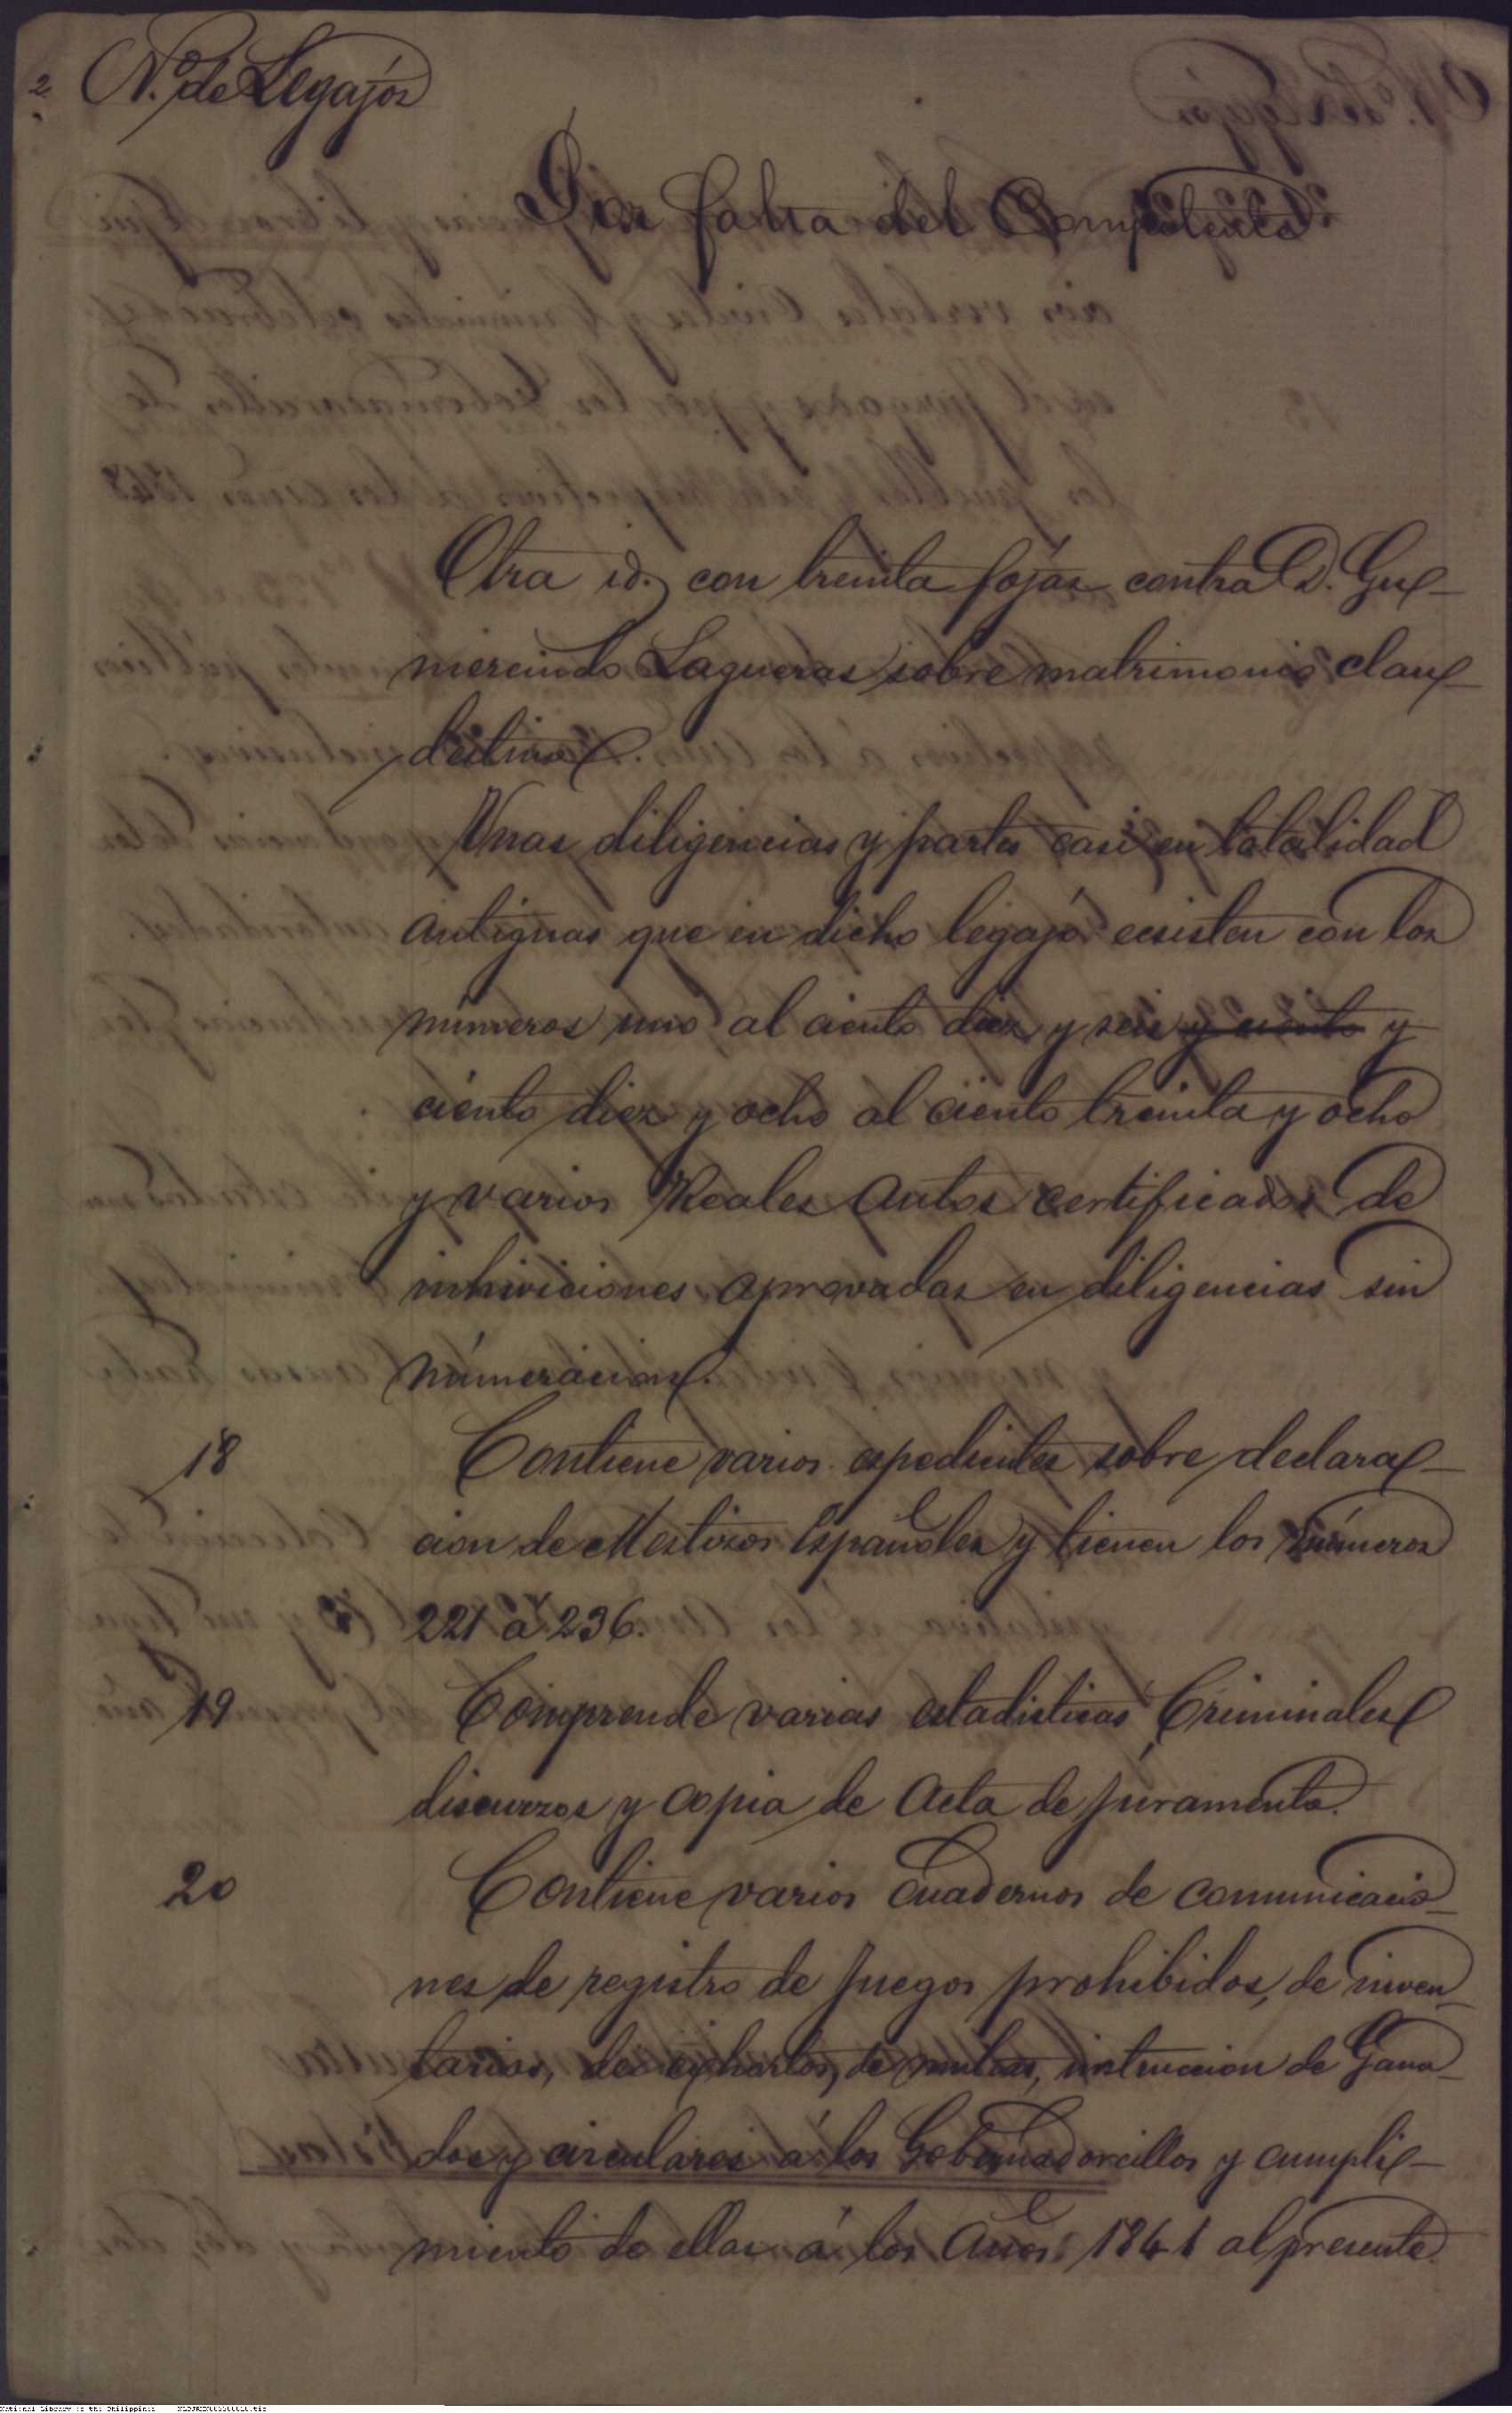 2
N.º de Legajos
Por falta del Competente
Otra id. con treinta fojas contra D. Gu-
mercindo Lagueras sobre matrimonio clan-
destino.
Unas diligencias y partes casi en totalidad
antiguas que en dicho legajo ecsisten con los
números uno al ciento diez y seis y ciento y
ciento diez y ocho al ciento treinta y ocho
y varios Reales Autos certificados de
inhiviciones aprovadas en diligencias sin
númeracion.
18 Contiene varios espedientes sobre declara-
cion de Mestizos Españoles y tienen los números
221 á 236.
19 Comprende varias estadisticas Criminales
discurzos y copia de Acta de juramento.
20 Contiene varios Cuadernos de comunicacio-
nes de registro de juegos prohibidos, de inven-
tarios, de exhortos, de multas, instruccion de Gana-
dos y circulares á los Gobernadorcillos y cumpli-
miento de ellas á los Años 1841 al presente.